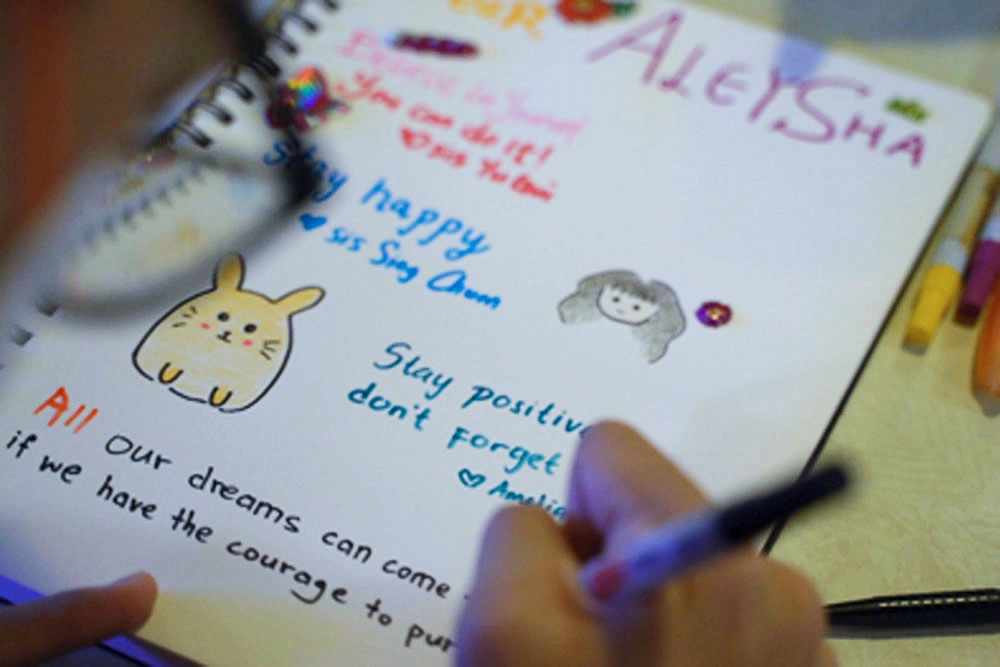 FOR
ALEYSHA
Believe in
You can do it!
sis
Stay happy
sis Sing Chum
Stay positive
don't forget
Amelia
All Our dreams can come
if we have the courage to pur